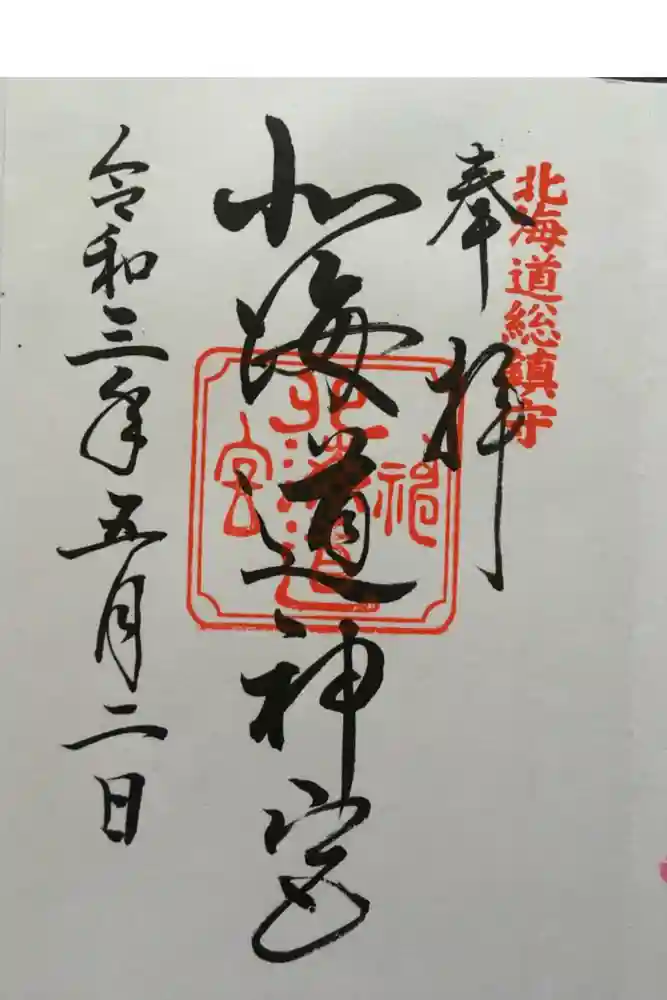 北海道総鎮守
奉拝
北海道神宮
令和三年五月二日